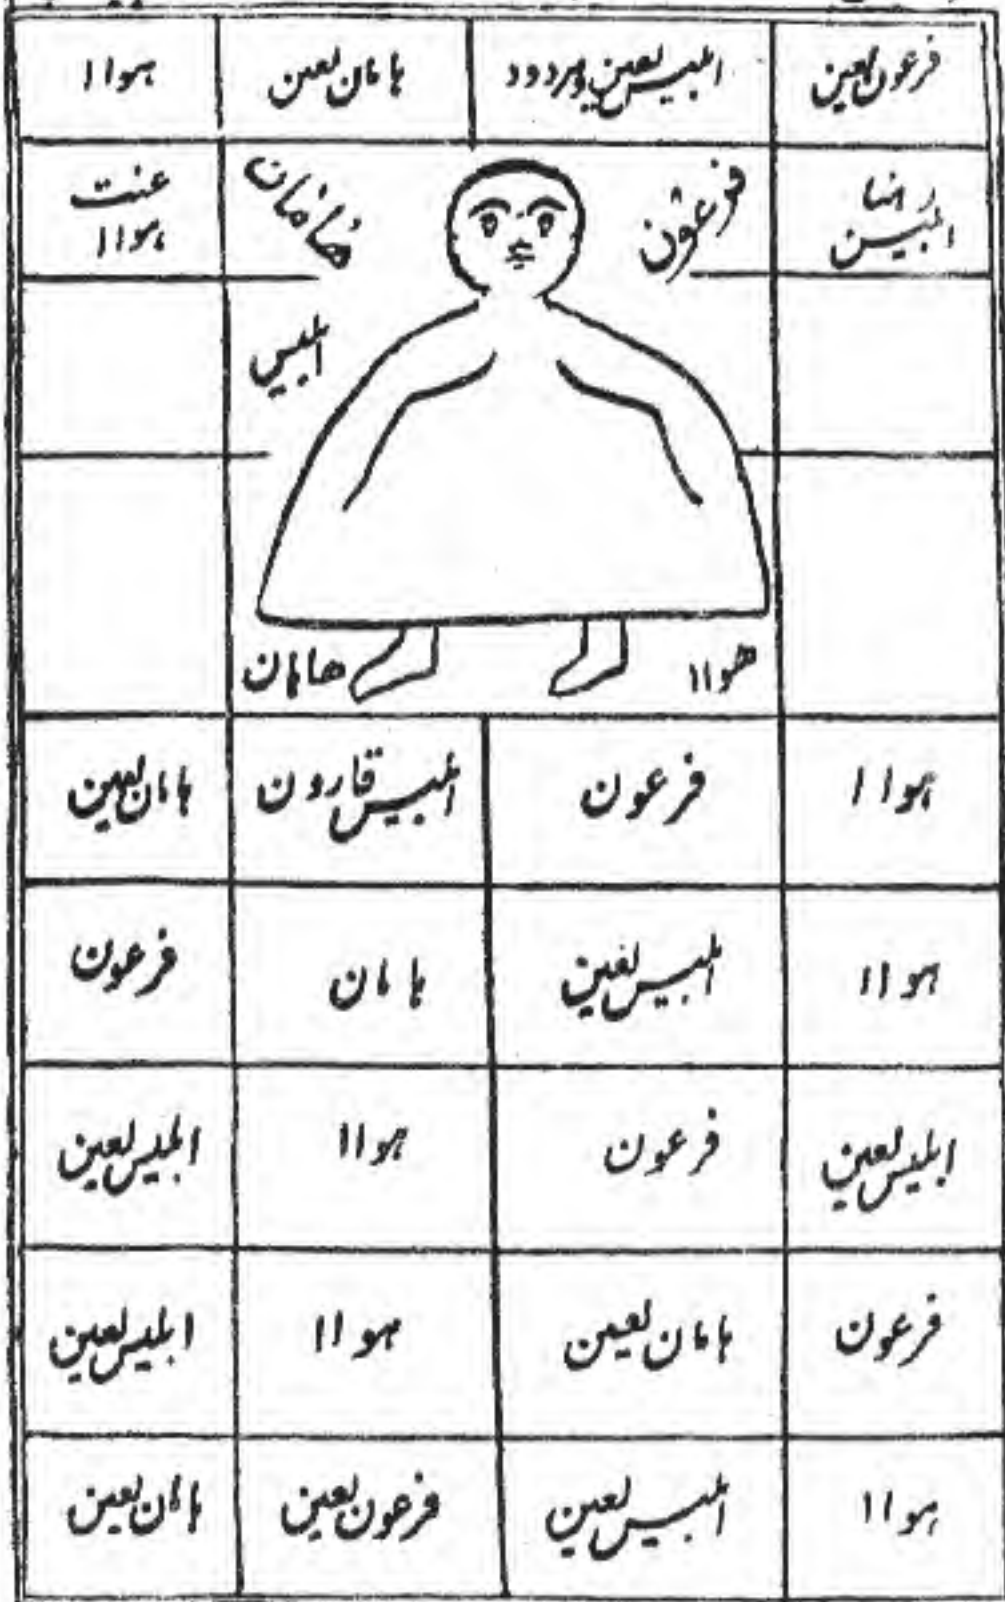 فرعون لعین ابلیس لعین ومردود ہامان لعین ہواا
ابلیس فرعون ہامان عنت
ہواا
ابلیس
ھواا ھامان
ہواا فرعون ابلیس قارون ہامان لعین
ہواا ابلیس لعین ہامان فرعون
ابلیس لعین فرعون ہواا ابلیس لعین
فرعون ہامان لعین ہواا ابلیس لعین
ہواا ابلیس لعین فرعون لعین ہامان لعین